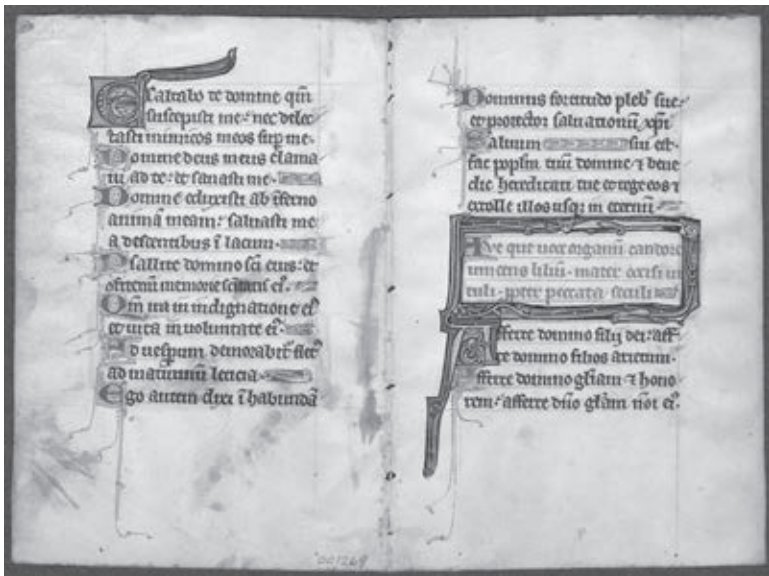 Exaltabo te domine qm̄
suscepisti me· nec delec
tasti inimicos meos sup me·
Domine deus meus clama
ui ad te· et sanasti me·
Domine eduxisti ab īferno
animā meam· saluasti me
a descendentibus ī lacum·
Psallite domino sc̄i eius· et
memorie ei⁹·
Qm̄ ira in indignatione ei⁹
et uita in uoluntate ei⁹·
Ad uesperum demorabit᷑ flet⁹
ad matutinum leticia·
Ego autem dixi ī habundā
Dominus fortitudo pleb᷑ sue·
et protector saluationū xp̄i
Saluum sui est·
fac popłm tuū domine ⁊ bene
dic hereditati tue et rege eos ⁊
extolle illos usq᷑ in eternū
Aue que uox organū candore
liliū· mater
peccata seculi
Afferte domino filii dei· aff
te domino filios arietum·
Afferte domino gl̄iam ⁊ hono
rem· afferte dn̄o gl̄am ei⁹·
001269